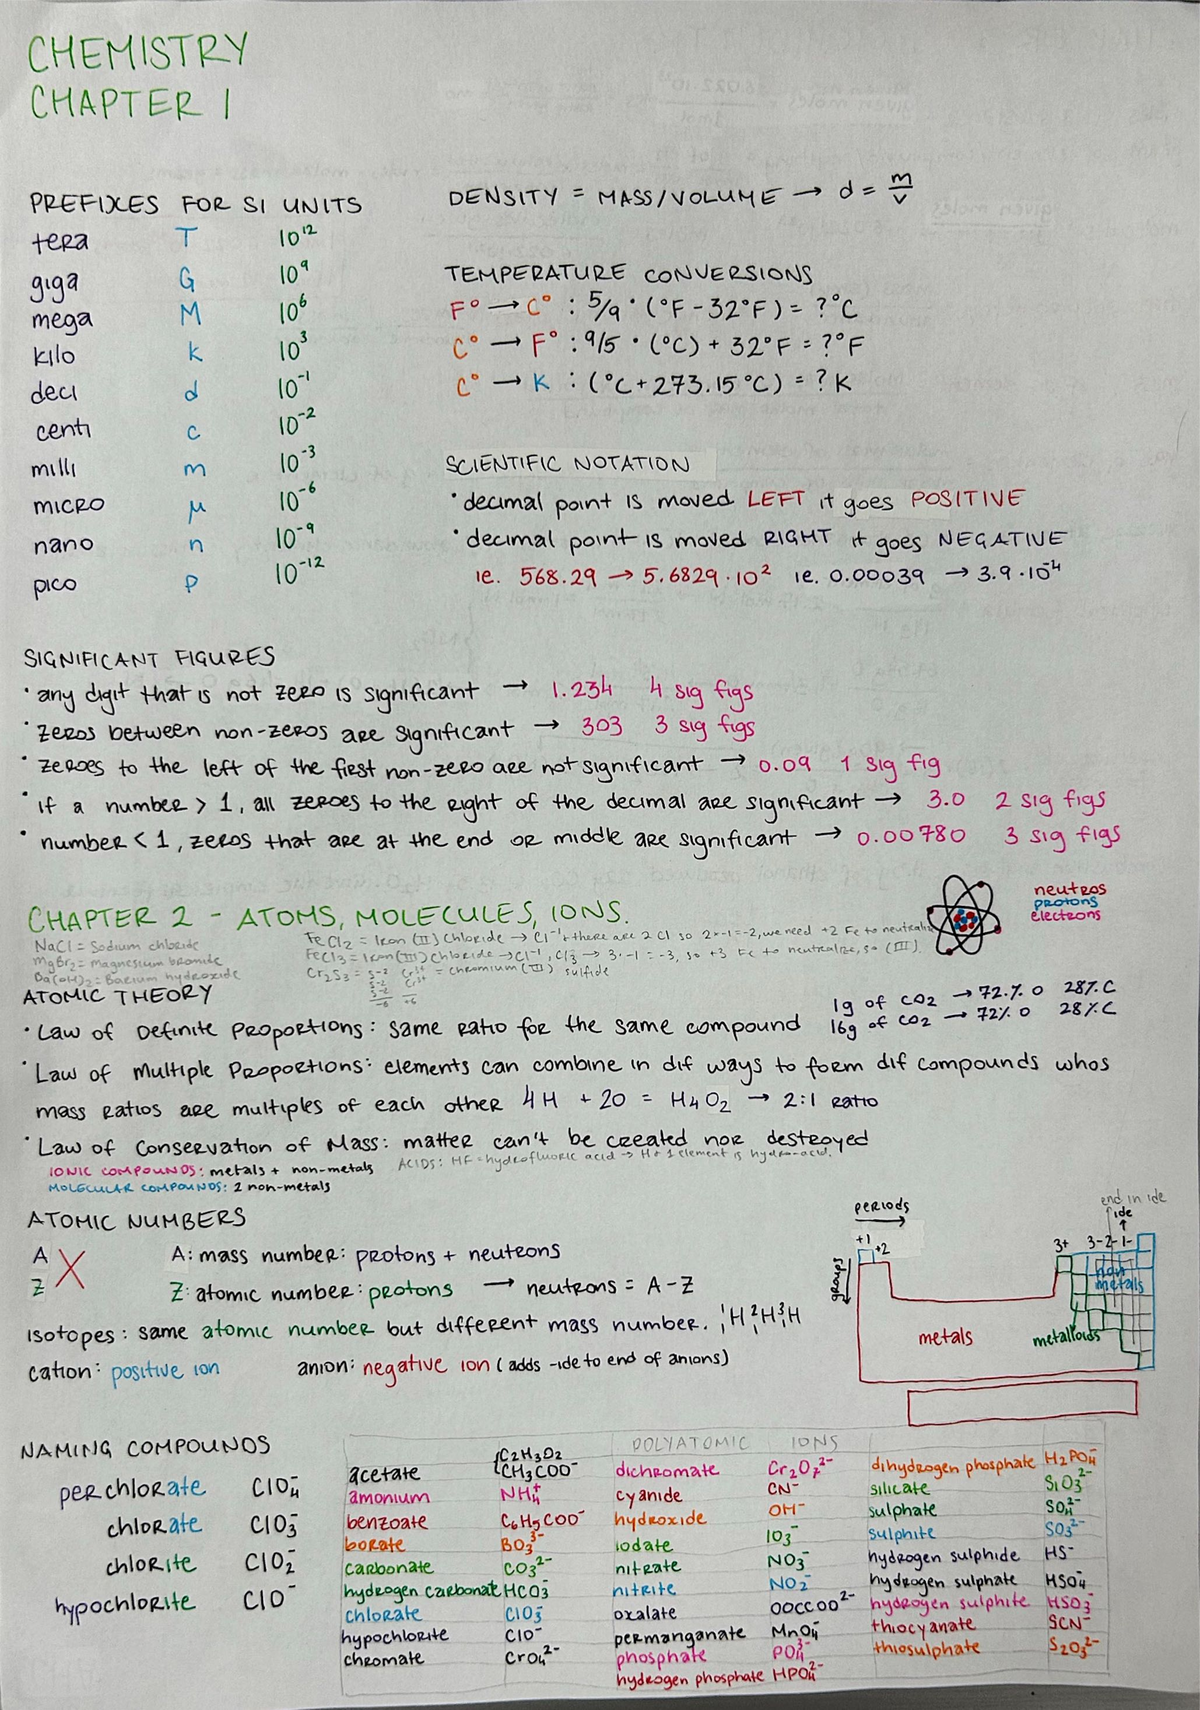 CHEMISTRY
CHAPTER 1
PREFIXES FOR SI UNITS
tera T 10¹²
giga G 10⁹
mega M 10⁶
kilo k 10³
deci d 10⁻¹
centi c 10⁻²
milli m 10⁻³
micro μ 10⁻⁶
nano n 10⁻⁹
pico p 10⁻¹²
DENSITY = MASS/VOLUME → d = m/v
TEMPERATURE CONVERSIONS
F° → C° : 5/9 · (°F - 32°F) = ?°C
C° → F° : 9/5 · (°C) + 32°F = ?°F
C° → K : (°C + 273.15°C) = ? K
SCIENTIFIC NOTATION
· decimal point is moved LEFT it goes POSITIVE
· decimal point is moved RIGHT it goes NEGATIVE
ie. 568.29 → 5.6829 · 10² ie. 0.00039 → 3.9 · 10⁻⁴
SIGNIFICANT FIGURES
· any digit that is not zero is significant → 1.234 4 sig figs
· zeros between non-zeros are significant → 303 3 sig figs
· zeroes to the left of the first non-zero are not significant → 0.09 1 sig fig
· if a number > 1, all zeroes to the right of the decimal are significant → 3.0 2 sig figs
· number < 1, zeros that are at the end or middle are significant → 0.00780 3 sig figs
CHAPTER 2 - ATOMS, MOLECULES, IONS.
neutros
protons
electrons
NaCl = Sodium chloride
MgBr₂ = magnesium bromide
Ba(OH)₂ = Barium hydroxide
FeCl₂ = Iron (II) Chloride → Cl⁻¹ + there are 2 Cl so 2×-1=-2, we need +2 Fe to neutralize
FeCl₃ = Iron (III) Chloride → Cl⁻¹, Cl₃ → 3·-1 = -3, so +3 Fe to neutralize, so (III).
Cr₂S₃ = S⁻² Cr³⁺ = chromium (III) sulfide
S⁻² Cr³⁺
S⁻² +6
-6
ATOMIC THEORY
· Law of Definite Proportions: same ratio for the same compound
1g of CO₂ → 72.% O 28% C
16g of CO₂ → 72% O 28% C
· Law of Multiple Proportions: elements can combine in dif ways to form dif compounds whos
mass ratios are multiples of each other 4H + 2O = H₄O₂ → 2:1 ratio
· Law of Conservation of Mass: matter can't be created nor destroyed
IONIC COMPOUNDS: metals + non-metals
ACIDS: HF = hydrofluoric acid → H + 1 element is hydro-acid.
MOLECULAR COMPOUNDS: 2 non-metals
ATOMIC NUMBERS
A
Z X
A: mass number: protons + neutrons
Z: atomic number: protons → neutrons = A - Z
isotopes: same atomic number but different mass number. ¹₁H ²₁H ³₁H
cation: positive ion anion: negative ion (adds -ide to end of anions)
periods
groups
+1 +2
3+ 3- 2- 1-
end in ide
ide
non metals
metals
metalloids
NAMING COMPOUNDS
perchlorate ClO₄⁻
chlorate ClO₃⁻
chlorite ClO₂⁻
hypochlorite ClO⁻
POLYATOMIC IONS
acetate {C₂H₃O₂ CH₃COO⁻
amonium NH₄⁺
benzoate C₆H₅COO⁻
borate BO₃³⁻
carbonate CO₃²⁻
hydrogen carbonate HCO₃⁻
chlorate ClO₃⁻
hypochlorite ClO⁻
chromate CrO₄²⁻
dichromate Cr₂O₇²⁻
cyanide CN⁻
hydroxide OH⁻
iodate IO₃⁻
nitrate NO₃⁻
nitrite NO₂⁻
oxalate OOCCOO²⁻
permanganate MnO₄⁻
phosphate PO₄³⁻
hydrogen phosphate HPO₄²⁻
dihydrogen phosphate H₂PO₄⁻
silicate SiO₃²⁻
sulphate SO₄²⁻
sulphite SO₃²⁻
hydrogen sulphide HS⁻
hydrogen sulphate HSO₄⁻
hydrogen sulphite HSO₃⁻
thiocyanate SCN⁻
thiosulphate S₂O₃²⁻